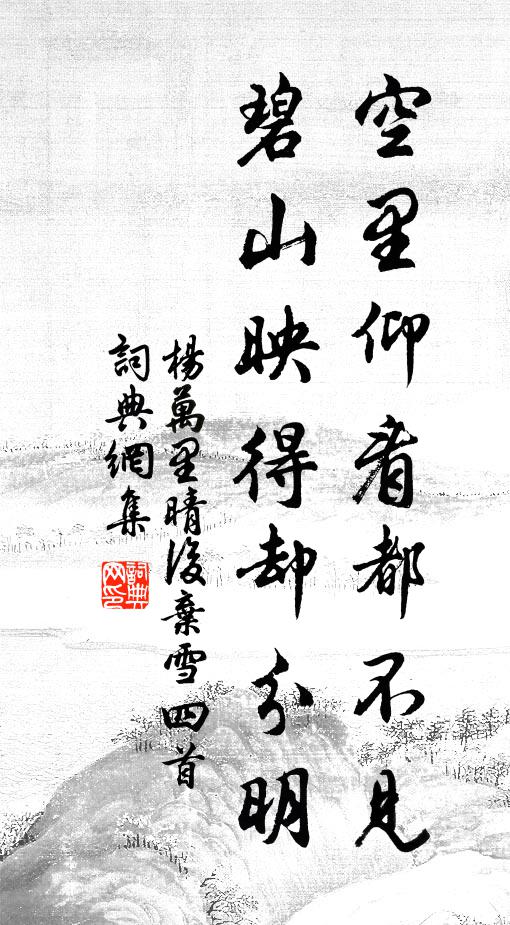 空里仰看都不見
碧山映得却分明
楊萬里晴後再雪四首
詞典網集
詞典網印